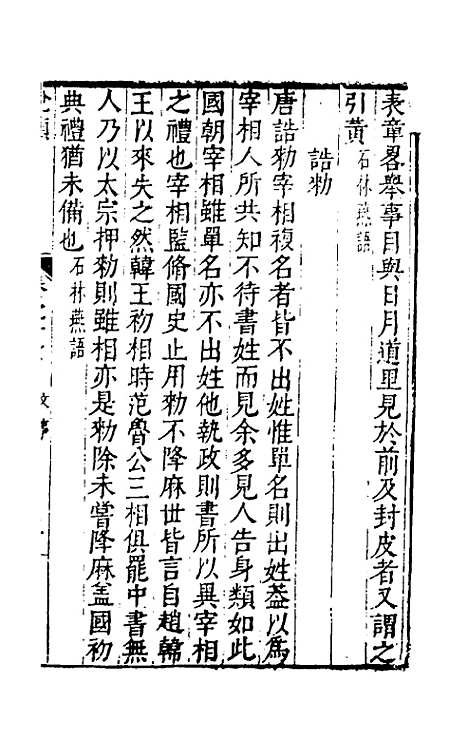 表章畧舉事目與日月道里見於前及封皮者又謂之
引黄石林燕語
誥勑
唐誥勑宰相複名者皆不出姓惟單名則出姓葢以爲
宰相人所共知不待書姓而見余多見人告身類如此
國朝宰相雖單名亦不出姓他執政則書所以異宰相
之禮也宰相監脩國史止用勑不降麻丗皆言自趙韓
王以來失之然韓王初相時范魯公三相俱罷中書無
人乃以太宗押勑則雖相亦是勑除未嘗降麻葢國初
典禮猶未備也石林燕語